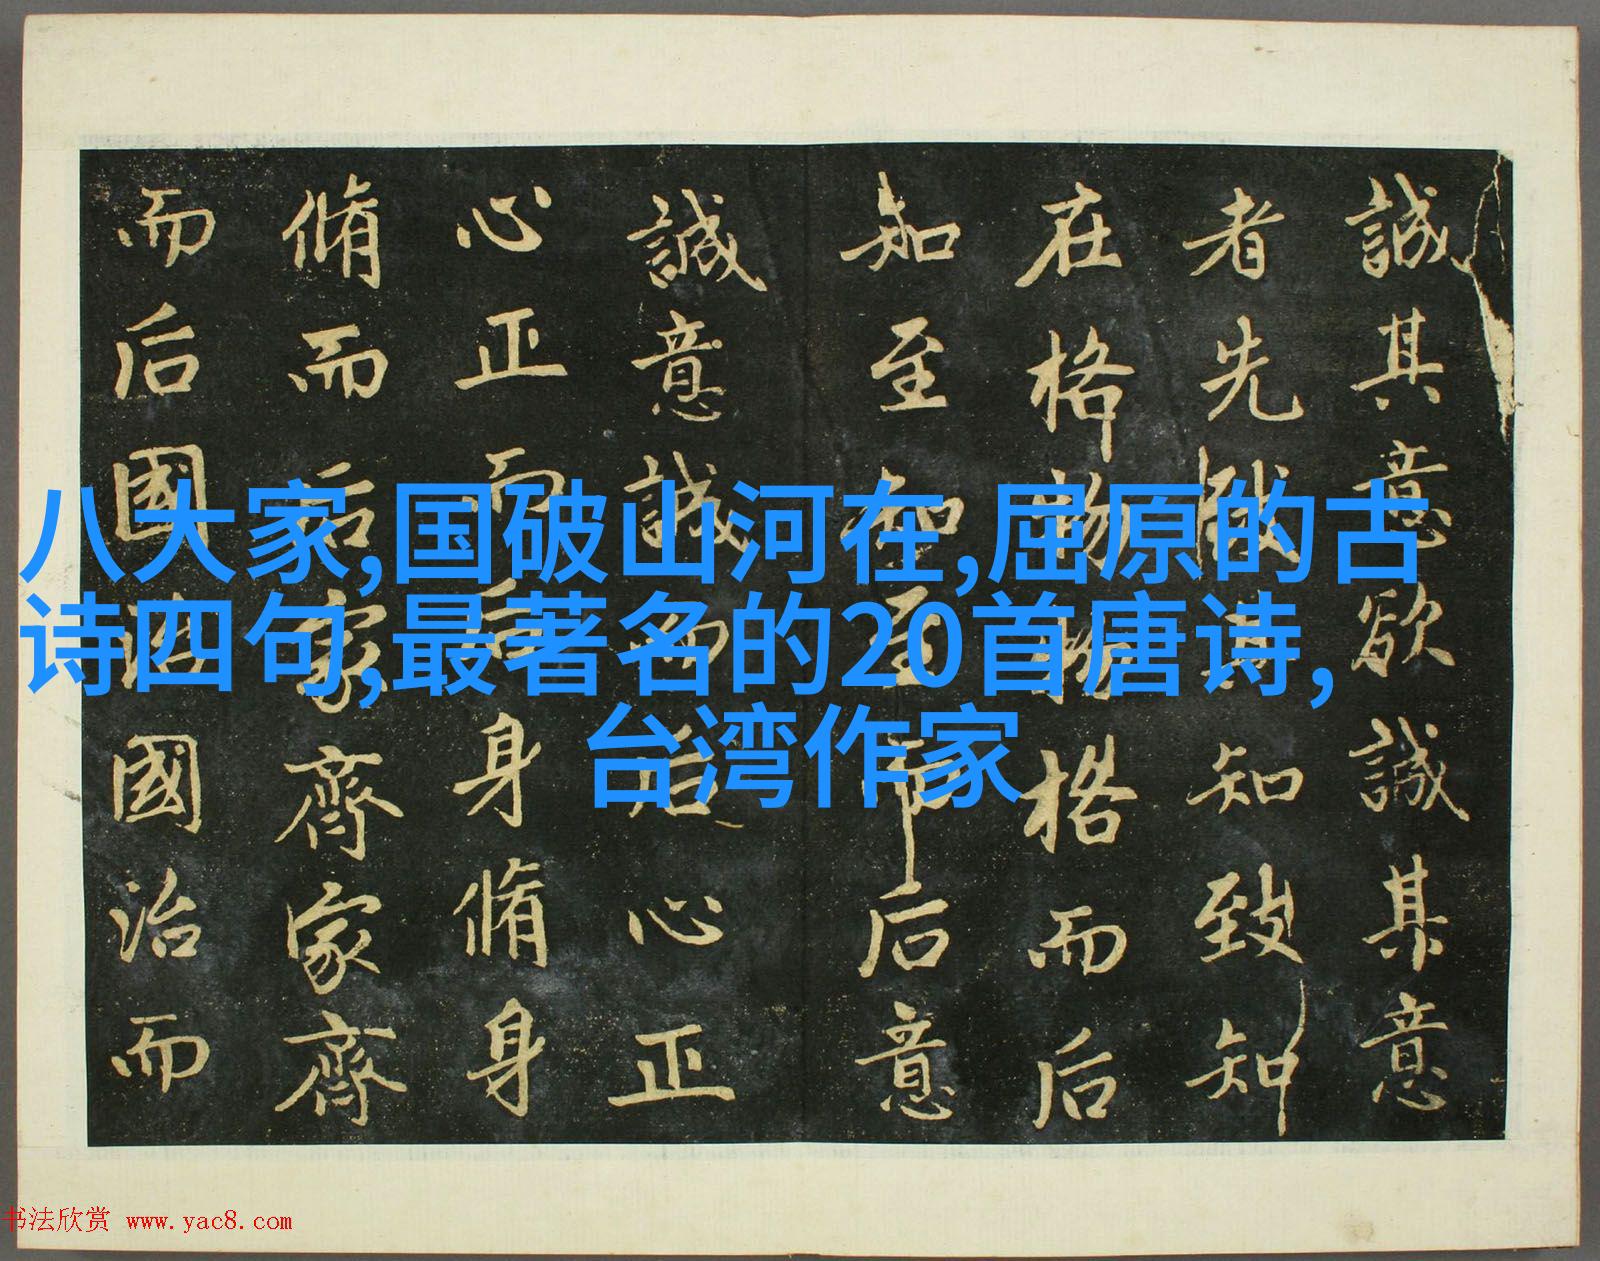 誠其意欲誠其意
者先致其知致知
在格物物格而后
知至知至而后意
誠意誠而后心正
心正而后身脩身
脩而后家齊家齊
而后國治國治而
八大家,国破山河在,屈原的古
诗四句,最著名的20首唐诗,
台湾作家
书法欣赏 www.yac8.com